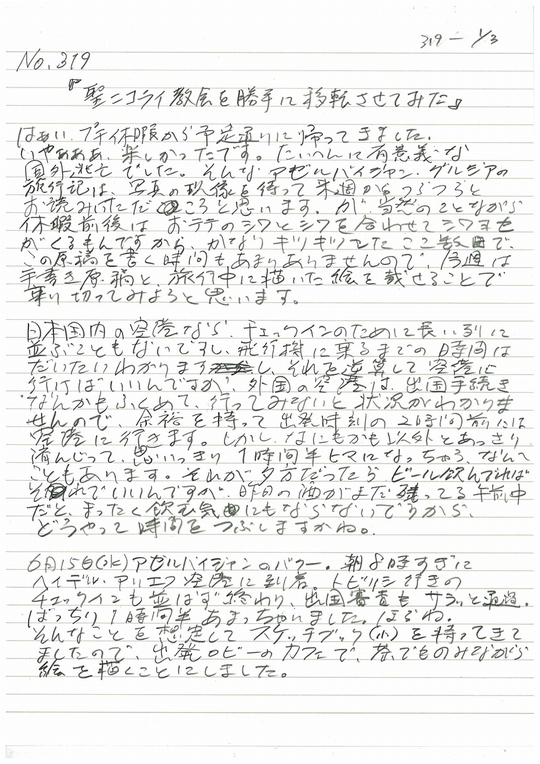 319-1/3
No.319
『聖ニコライ教会を勝手に移転させてみた』
はぁい、プチ休暇から予定通りに帰ってきました。
いやぁあぁ、楽しかったです。たいへんに有意義な
国外逃亡でした。そんなアゼルバイジャン、グルジアの
旅行記は、写真の現像を待って来週からつらつらと
お読みいただくところと思います。が、当然のことながら
休暇前後はおテテのシワとシワを合わせてシワヨセ
がくるもんですから、かなりキツキツでしたここ数日で、
この原稿を書く時間もあまりありませんので、今週は
手書き原稿と、旅行中に描いた絵を載せることで
乗り切ってみようと思います。
日本国内の空港なら、チェックインのために長い列に
並ぶこともないですし、飛行機に乗るまでの時間は
だいたいわかりますし、それを逆算して空港に
行けばいいんですが、外国の空港は、出国手続き
なんかもふくめて、行ってみないと状況がわかりま
せんので、余裕を持って出発時刻の2時間前には
空港に行きます。しかし、なにもかも以外とあっさり
済んじって、思いっきり1時間半ヒマになっちゃう、なんて
こともあります。それが夕方だったらビール飲んでれば
それでいいんですが、昨日の酒がまだ残ってる午前中
だと、まったく飲む気にもならないですから、
どうやって時間をつぶしますかね。
6月15日(水)アゼルバイジャンのバクー。朝8時すぎに
ヘイデル・アリエフ空港に到着。トビリシ行きの
チェックインも並ばず終わり、出国審査もサラッと通過。
ばっちり1時間半あまっちゃいました。ほらね。
そんなことを想定してスケッチブック(小)を持ってきて
ましたので、出発ロビーのカフェで、茶でものみながら
絵を描くことにしました。